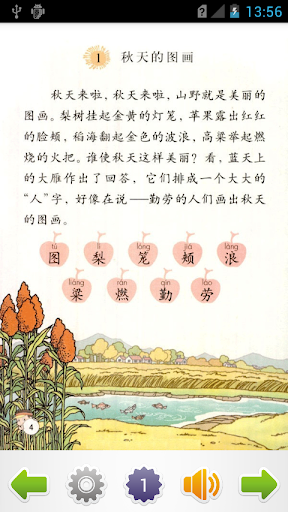 13:56
1 秋天的图画
秋天来啦，秋天来啦，山野就是美丽的
图画。梨树挂起金黄的灯笼，苹果露出红红
的脸颊，稻海翻起金色的波浪，高粱举起燃
烧的火把。谁使秋天这样美丽？看，蓝天上
的大雁作出了回答，它们排成一个大大的
“人”字，好像在说——勤劳的人们画出秋天
的图画。
tú lí lóng jiá làng
图 梨 笼 颊 浪
liáng rán qín láo
粱 燃 勤 劳
4
1